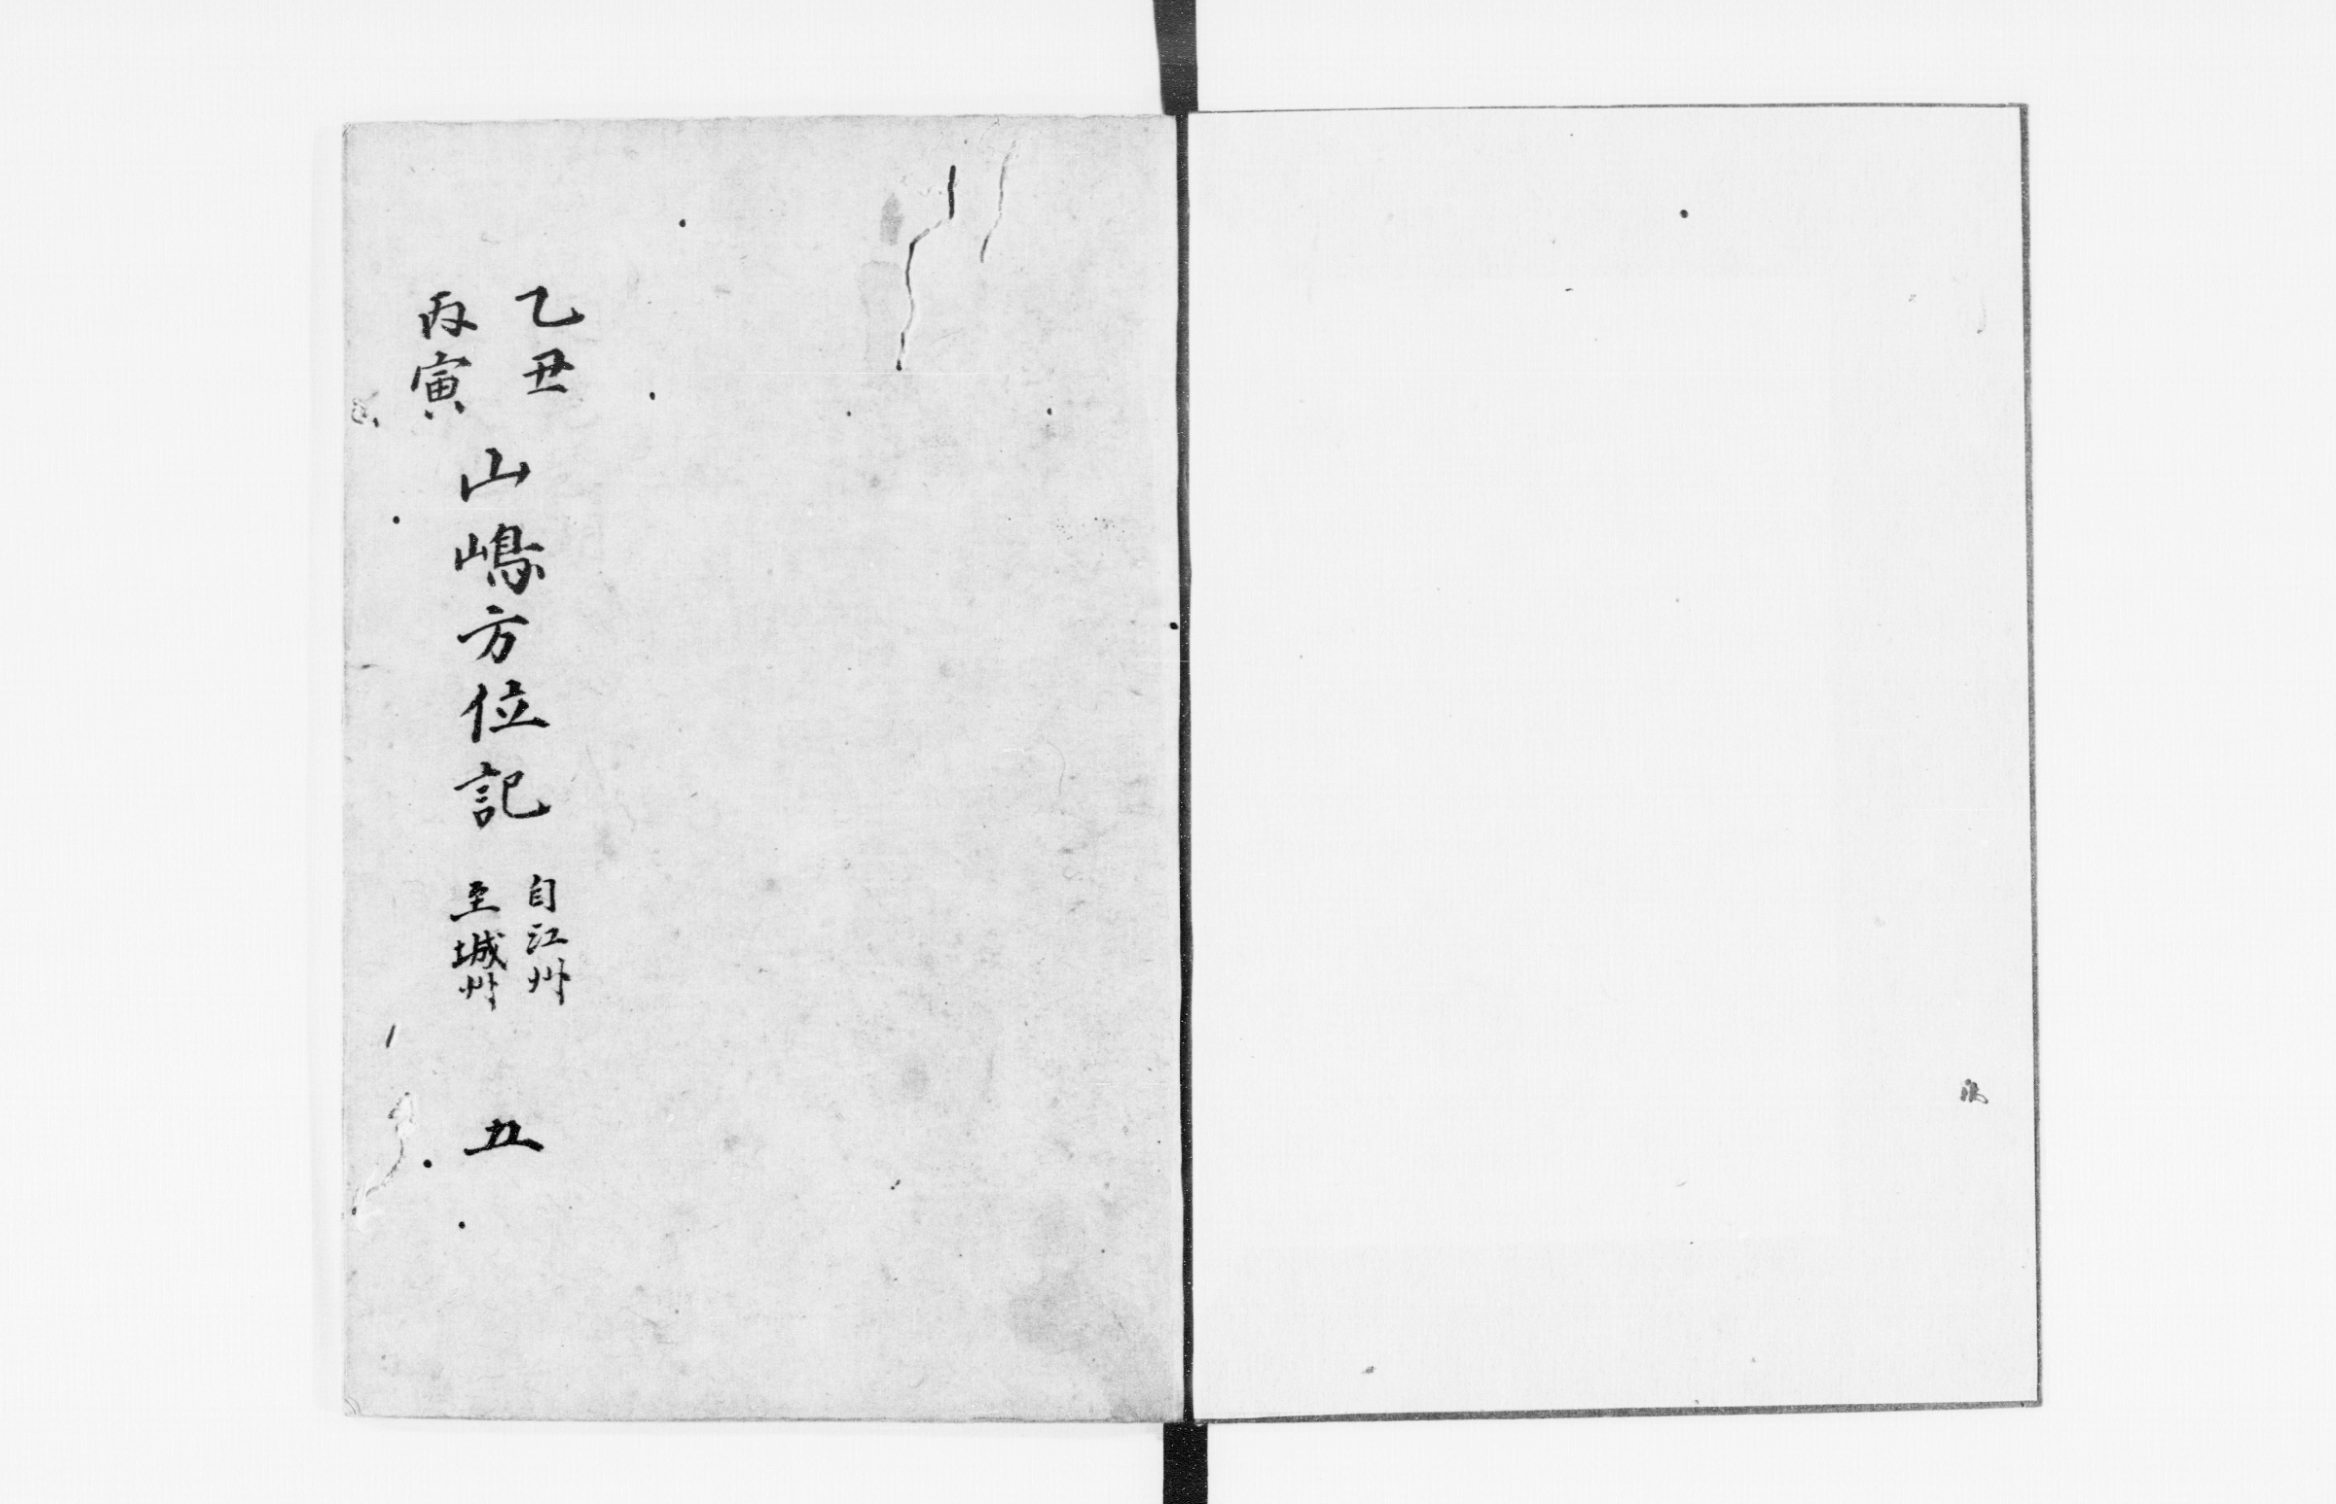 乙丑
丙寅
山嶋方位記
自江州
至城州
五